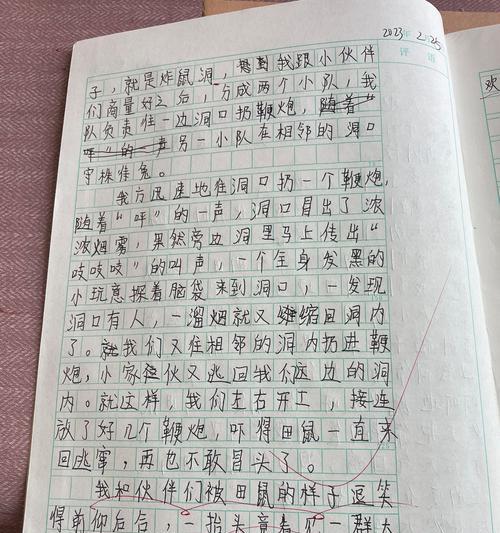 2023年 2.25
评语
子，就是炸鼠洞，我跟小伙伴
们商量好之后，分成两个小队，我
队负责往一边洞口扔鞭炮，随着“
呯”的一声另一小队在相邻的洞口
守株待兔。
我方迅速地往洞口扔一个鞭炮，
随着“呯”的一声，洞口冒出了浓
浓烟雾，果然旁边洞里马上传出“
吱吱吱”的叫声，一个全身发黑的
小玩意探着脑袋来到洞口，一发现
洞口有人，一溜烟就又缩回洞内
了。我们又往相邻的洞内扔进鞭
炮，小家伙又逃回我们这边的洞
内。就这样，我们左右开工，接连
放了好几个鞭炮，吓得田鼠一直来
回逃窜，再也不敢冒头了。
我和伙伴们被田鼠的样子逗笑
得前仰后合，一抬头竟看见一群大
欢